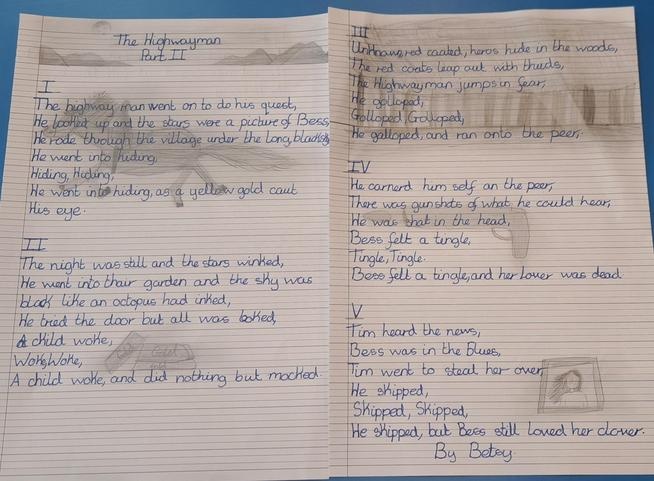 The Highwayman
Part II
I
The highway man went on to do his quest,
He looked up and the stars were a picture of Bess,
He rode through the village under the long, black sky,
He went into hiding,
Hiding, Hiding,
He went into hiding, as a yellow gold caut
His eye.
II
The night was still and the stars winked,
He went into thair garden and the sky was
black like an octopus had inked,
He tried the door but all was locked,
A child woke,
Woke, Woke,
A child woke, and did nothing but mocked.
III
red coated, heros hide in the woods,
The red coats leap out with thuds,
The Highwayman jumps in fear,
He golloped,
Golloped, Golloped,
He galloped, and ran onto the peer,
IV
He carnerd him self an the peer,
There was gunshots of what he could hear,
He was shot in the head,
Bess felt a tingle,
Tingle, Tingle.
Bess felt a tingle, and her lover was dead
V
Tim heard the news,
Bess was in the blues,
Tim went to steal her over,
He skipped,
Skipped, Skipped,
He skipped, but Bess still loved her clover.
By Betsy